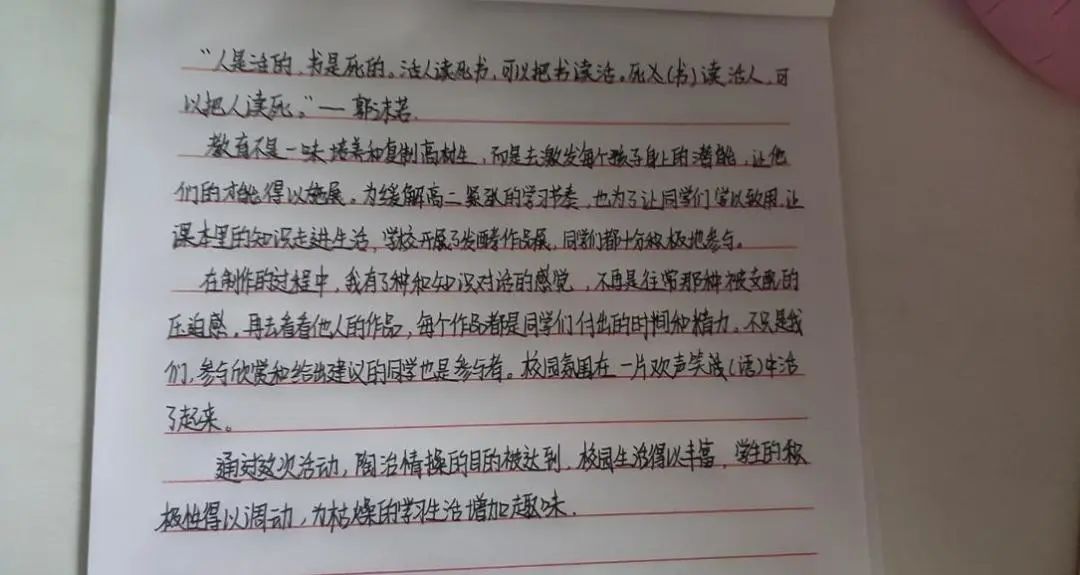 “人是活的，书是死的。活人读死书，可以把书读活。死乂(书)读活人，可
以把人读死。”— 郭沫若.
教育不是一味培养和复制高材生，而是去激发每个孩子身上的潜能，让他
们的才能得以施展。为缓解高二紧张的学习节奏，也为了让同学们学以致用，让
课本里的知识走进生活，学校开展了发酵作品展，同学们都十分积极地参与。
在制作的过程中，我有了种和知识对话的感觉，不再是往常那种被支配的
压迫感。再去看看他人的作品，每个作品都是同学们付出的时间和精力。不只是我
们，参与欣赏和给出建议的同学也是参与者。校园氛围在一片欢声笑(语)中活
了起来。
通过这次活动，陶冶情操的目的被达到，校园生活得以丰富，学生的积
极性得以调动，为枯燥的学习生活增加趣味.